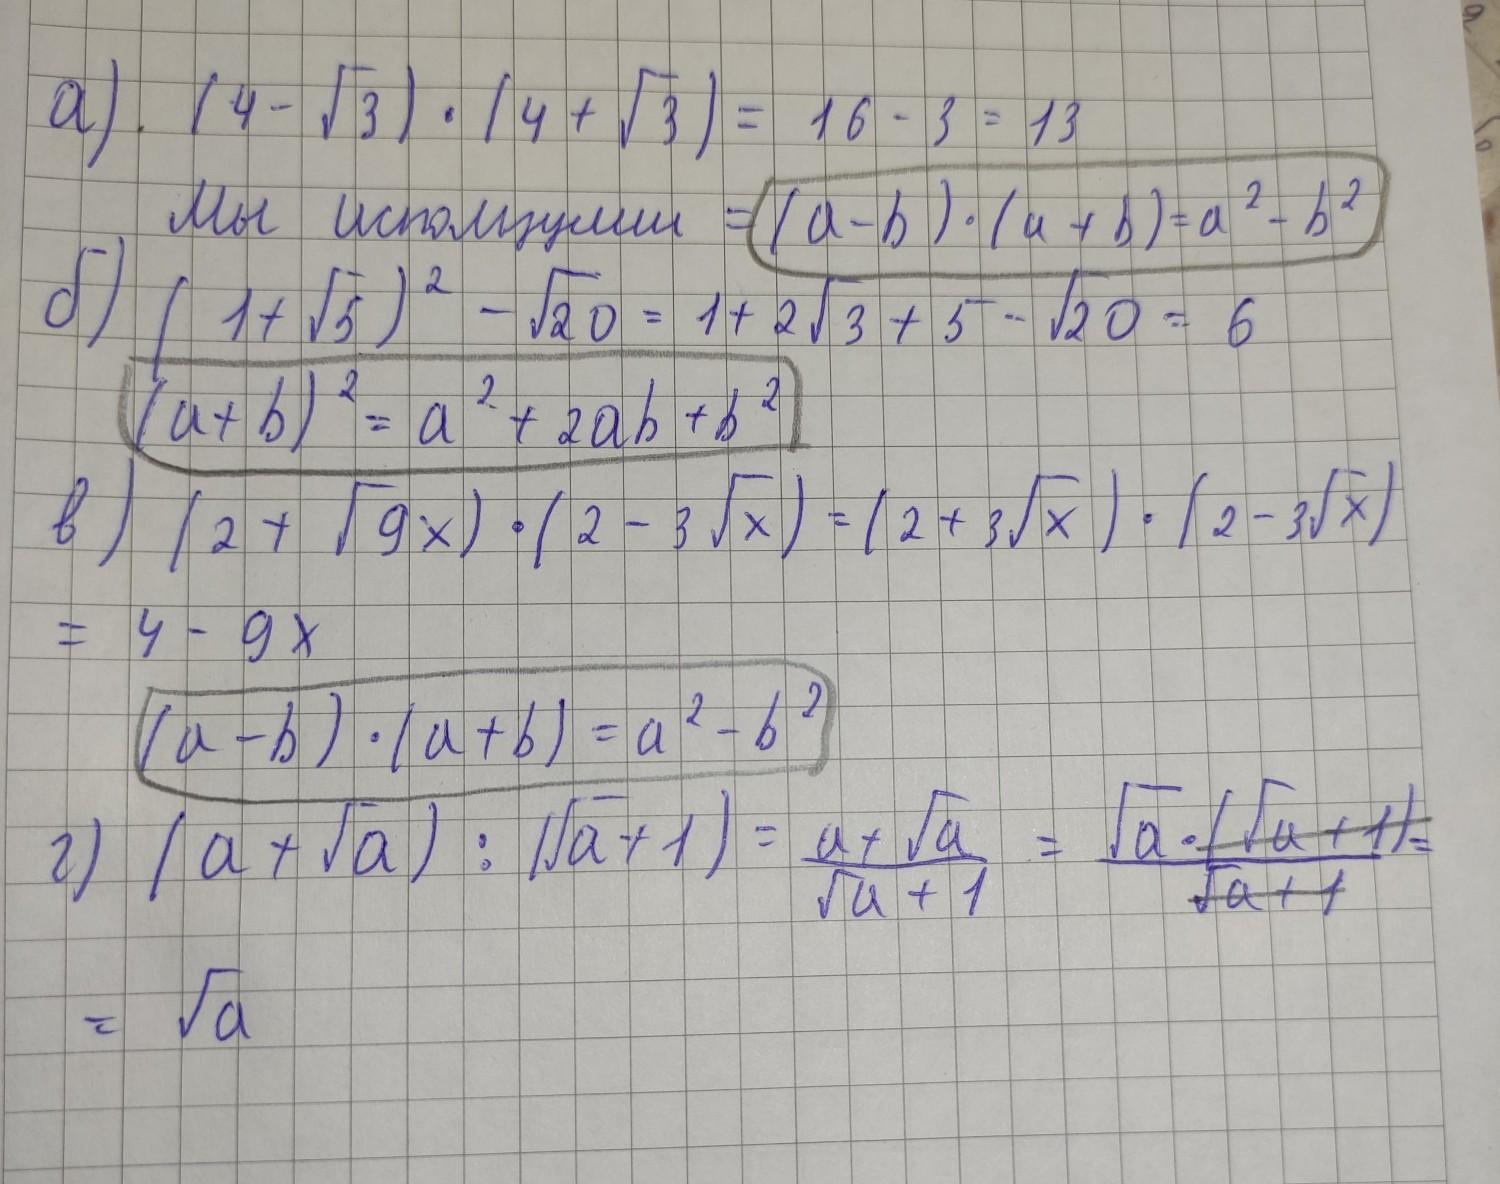 а). (4 - √3) · (4 + √3) = 16 - 3 = 13
Мы используем = (a - b) · (a + b) = a² - b²
б) (1 + √5)² - √20 = 1 + 2√3 + 5 - √20 = 6
(a + b)² = a² + 2ab + b²
в) (2 + √9x) · (2 - 3√x) = (2 + 3√x) · (2 - 3√x)
= 4 - 9x
(a - b) · (a + b) = a² - b²
г) (a + √a) : (√a + 1) = (a + √a)/(√a + 1) = (√a · (√a + 1))/(√a + 1) =
= √a